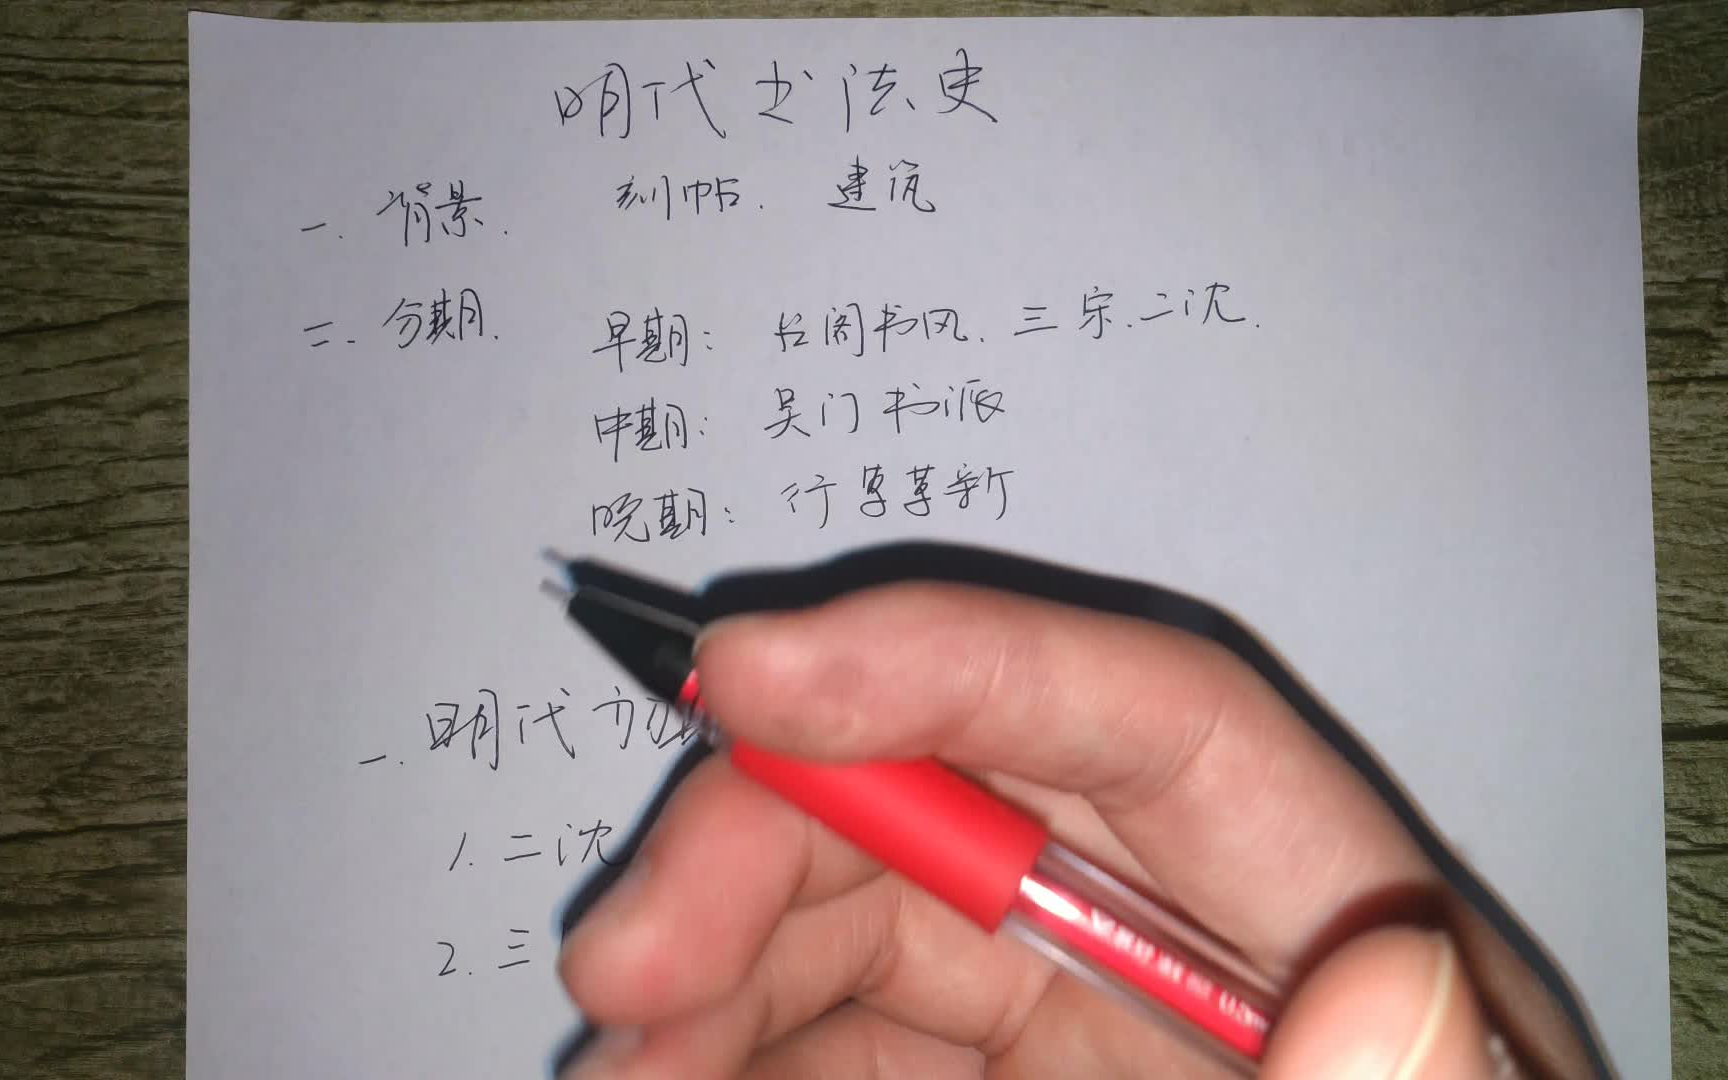 明代书法史
一. 背景. 刻帖. 建筑
二. 分期. 早期: 台阁书风. 三宋. 二沈.
中期: 吴门书派
晚期: 行草革新
一. 明代初期
1. 二沈
2. 三